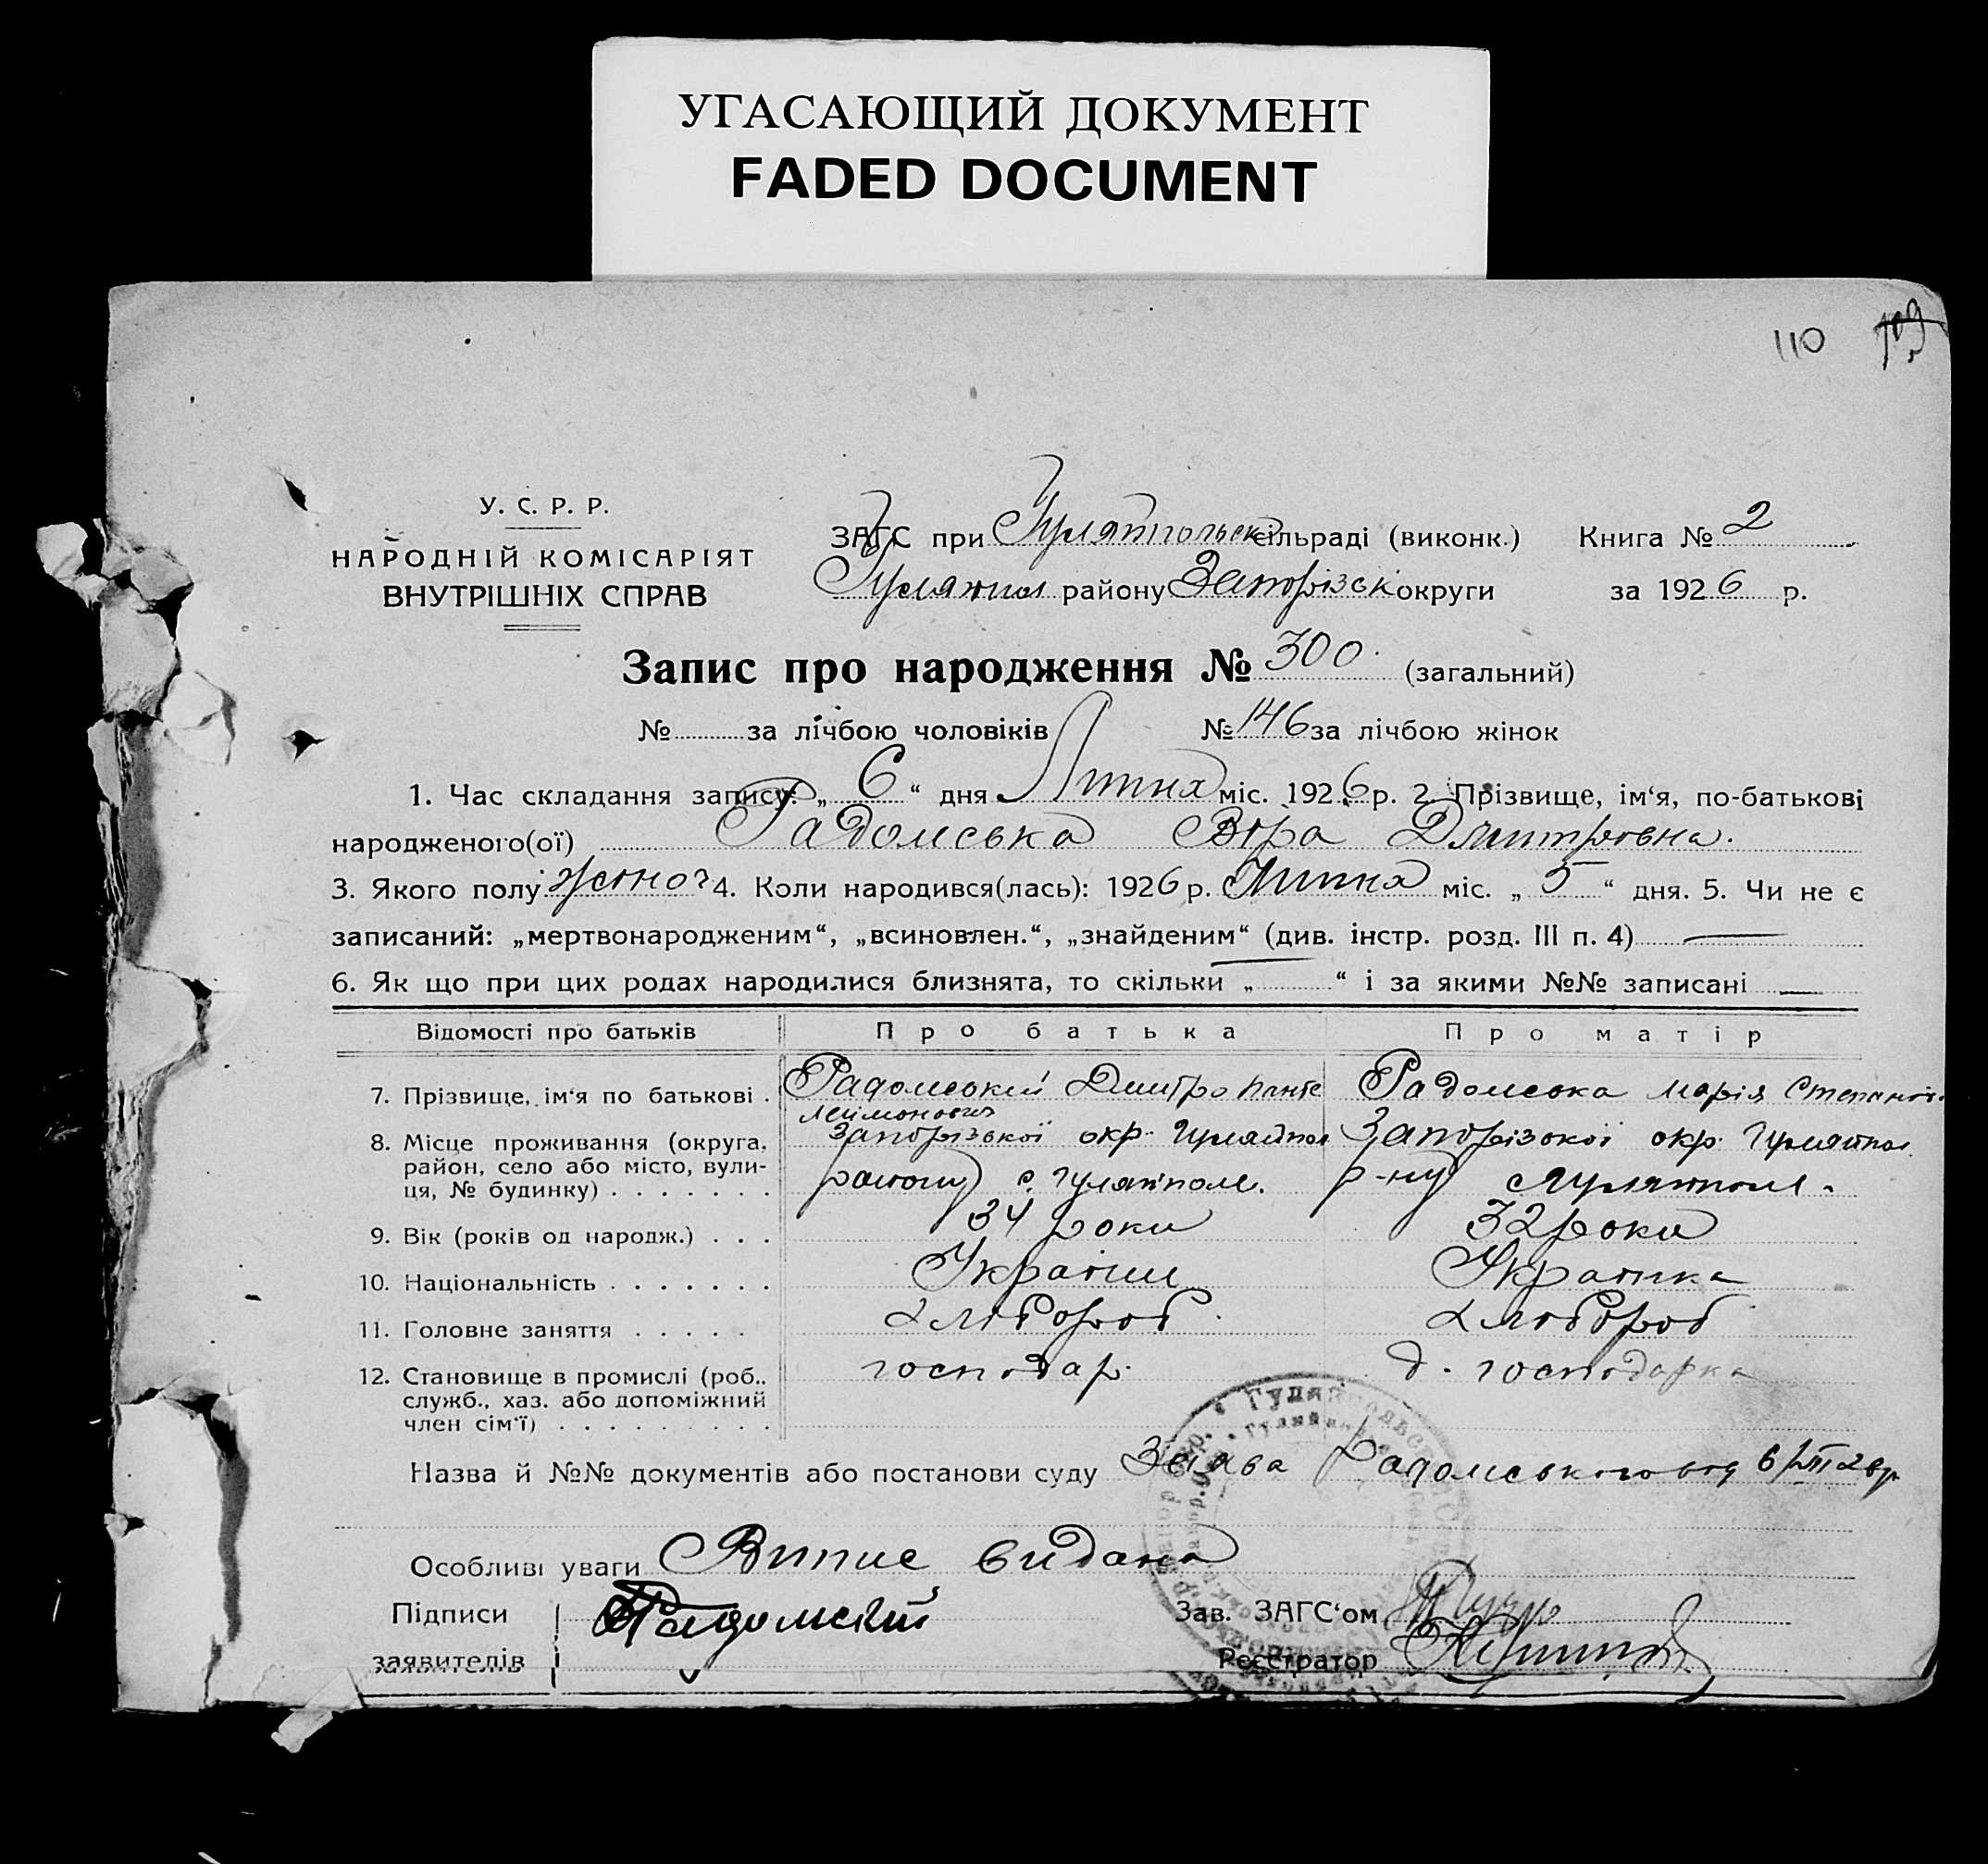 УГАСАЮЩИЙ ДОКУМЕНТ
FADED DOCUMENT
110 109
У. С. Р. Р.
НАРОДНІЙ КОМІСАРІЯТ
ВНУТРІШНІХ СПРАВ
ЗАГС при Гуляйпольск сільраді (виконк.) Книга № 2
Гуляйпол району Запорізьк округи за 1926 р.
Запис про народження № 300. (загальний)
№ за лічбою чоловіків № 146 за лічбою жінок
1. Час складання запису: „ 6 “ дня Липня міс. 1926 р. 2. Прізвище, ім‘я, по-батькові
народженого(ої) Радомська Віра Дмитровна.
3. Якого полу жіноч 4. Коли народився(лась): 1926 р. Липня міс. „ 5 “ дня. 5. Чи не є
записаний: „мертвонародженим“, „всиновлен.“, „знайденим“ (див. інстр. розд. III п. 4) —
6. Як що при цих родах народилися близнята, то скільки „ — “ і за якими №№ записані —
Відомості про батьків Про батька Про матір
7. Прізвище, ім‘я по батькові . Радомський Дмитро Панте Радомська Марія Степанів.
леймонович
8. Місце проживання (округа, Запорізької окр. Гуляйпол Запорізької окр. Гуляйпол.
район, село або місто, вули- району с. Гуляйполе. р-ну с. Гуляйполе.
ця, № будинку) . . . . . . .
9. Вік (років од народж.) . . . 34 роки 32 роки
10. Національність . . . . . . . Українц Українка
11. Головне заняття . . . . . хлібороб. хлібороб
12. Становище в промислі (роб., господар. д. господарка
служб., хаз. або допоміжний
член сім‘ї) . . . . . . . . .
Назва й №№ документів або постанови суду Заява Радомського від 6/VII 26р.
Особливі уваги Випис видано
Підписи Радомский Зав. ЗАГС‘ом
заявителів Реєстратор